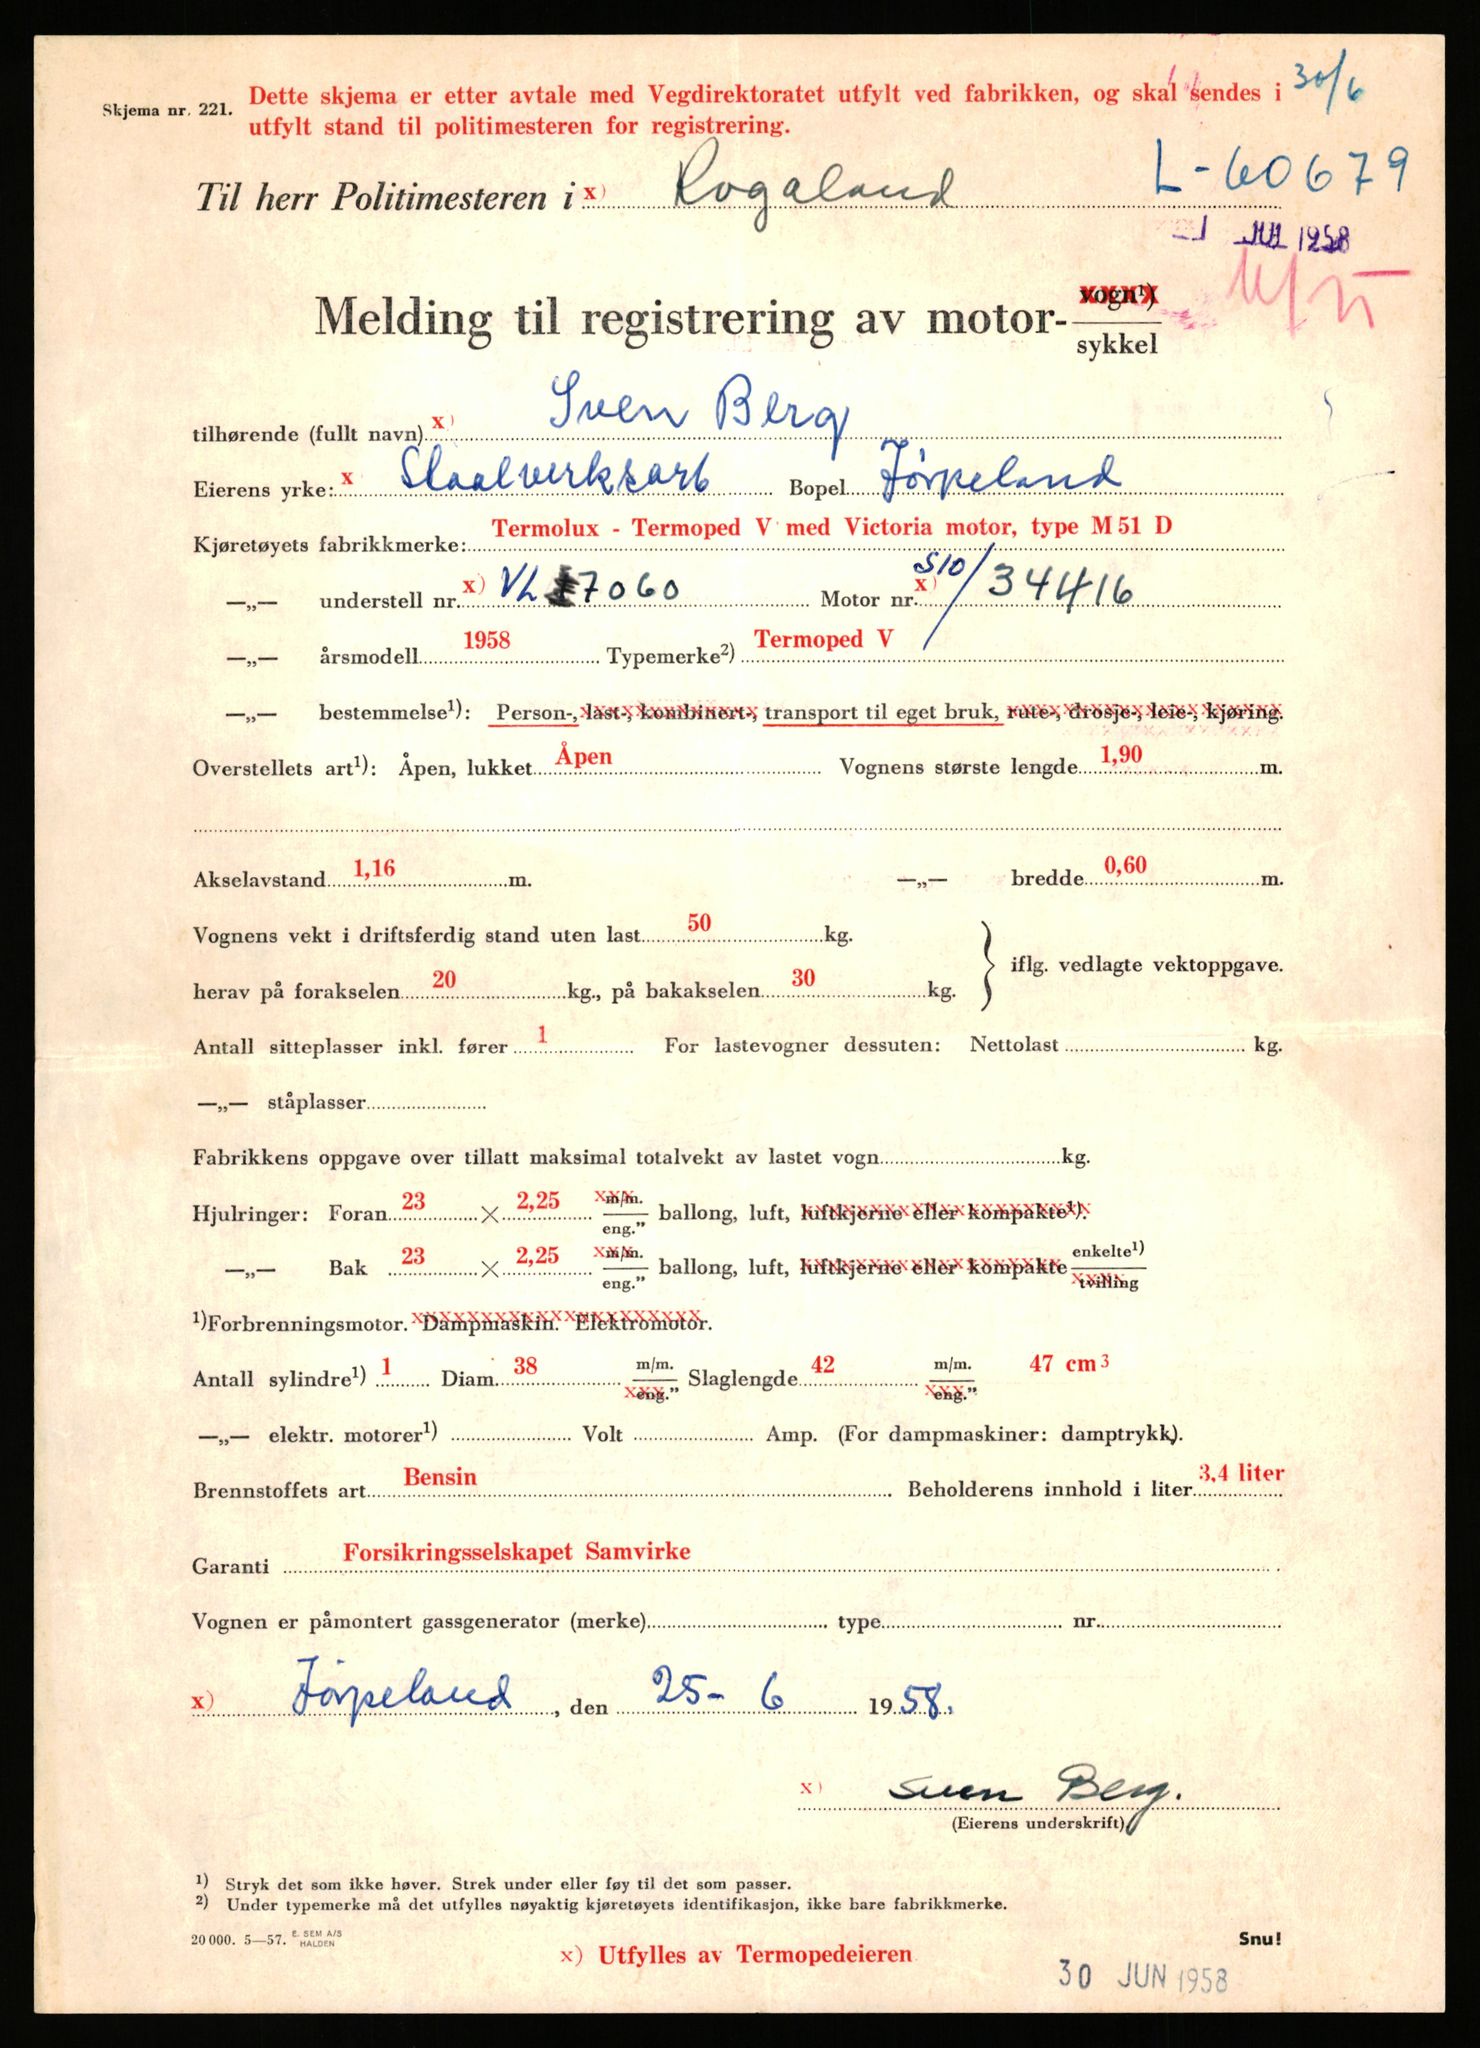 Skjema nr. 221.
Dette skjema er etter avtale med Vegdirektoratet utfylt ved fabrikken, og skal sendes i
utfylt stand til politimesteren for registrering.
30/6
Til herr Politimesteren i x) Rogaland
L-60679
1 JUL 1958
Melding til registrering av motor- vogn¹)
sykkel
tilhørende (fullt navn) x) Sven Berg
Eierens yrke: x Staalverksarb Bopel Jørpeland
Kjøretøyets fabrikkmerke: Termolux - Termoped V med Victoria motor, type M 51 D
—„— understell nr. x) VL 7060 Motor nr. x) 510/34416
—„— årsmodell 1958 Typemerke²) Termoped V
—„— bestemmelse¹): Person-, last-, kombinert-, transport til eget bruk, rute-, drosje-, leie-, kjøring.
Overstellets art¹): Åpen, lukket Åpen Vognens største lengde 1,90 m.
Akselavstand 1,16 m. —„— bredde 0,60 m.
Vognens vekt i driftsferdig stand uten last 50 kg.
herav på forakselen 20 kg., på bakakselen 30 kg.
iflg. vedlagte vektoppgave.
Antall sitteplasser inkl. fører 1 For lastevogner dessuten: Nettolast kg.
—„— ståplasser
Fabrikkens oppgave over tillatt maksimal totalvekt av lastet vogn kg.
Hjulringer: Foran 23 × 2,25 m/m. eng.” ballong, luft, luftkjerne eller kompakte¹).
—„— Bak 23 × 2,25 m/m. eng.” ballong, luft, luftkjerne eller kompakte enkelte¹) tvilling
¹)Forbrenningsmotor. Dampmaskin. Elektromotor.
Antall sylindre¹) 1 Diam. 38 m/m. eng.” Slaglengde 42 m/m. eng.” 47 cm³
—„— elektr. motorer¹) Volt Amp. (For dampmaskiner: damptrykk).
Brennstoffets art Bensin Beholderens innhold i liter 3,4 liter
Garanti Forsikringsselskapet Samvirke
Vognen er påmontert gassgenerator (merke) type nr.
x) Jørpeland, den 25-6 1958.
x) Sven Berg.
(Eierens underskrift)
¹) Stryk det som ikke høver. Strek under eller føy til det som passer.
²) Under typemerke må det utfylles nøyaktig kjøretøyets identifikasjon, ikke bare fabrikkmerke.
20 000. 5—57. E. SEM A/S HALDEN
Snu!
x) Utfylles av Termopedeieren
30 JUN 1958